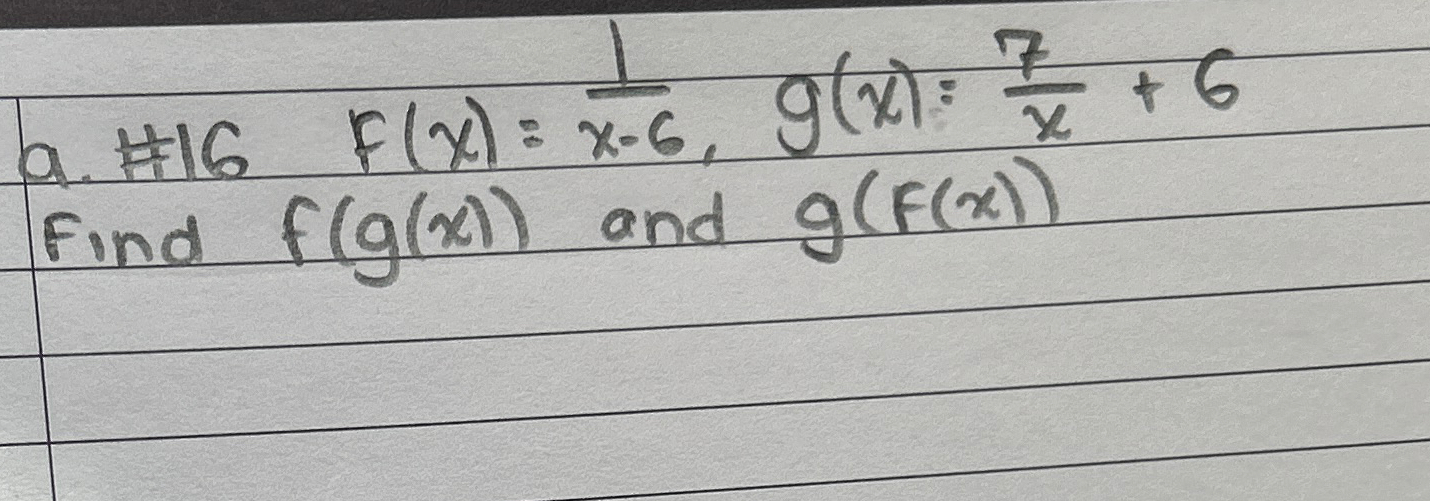 a. #16 F(x) = 1/x-6, g(x) = 7/x + 6
Find f(g(x)) and g(F(x))